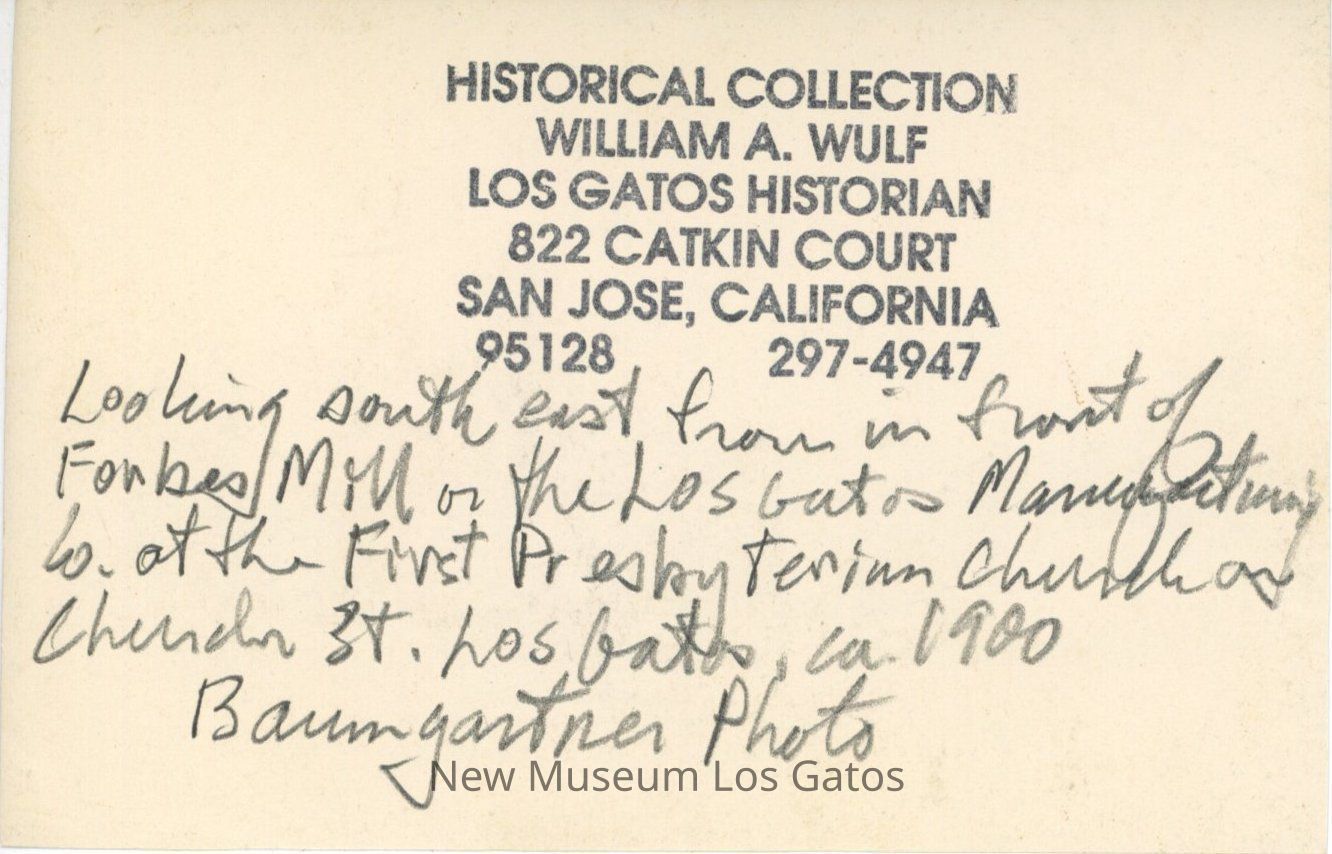 HISTORICAL COLLECTION
WILLIAM A. WULF
LOS GATOS HISTORIAN
822 CATKIN COURT
SAN JOSE, CALIFORNIA
95128 297-4947
Looking south east from in front of
Forbes Mill or the Los Gatos Manufacturing
Co. at the First Presbyterian Church on
Church St. Los Gatos, ca. 1900
Baumgartner Photo
New Museum Los Gatos